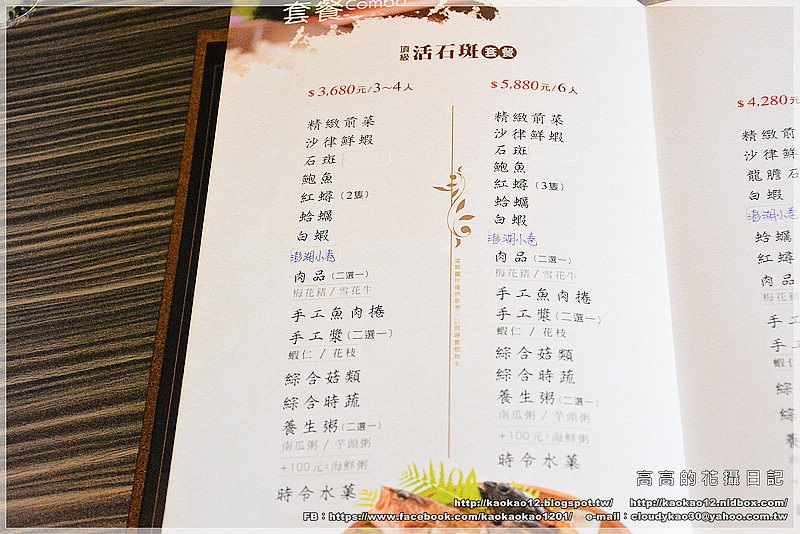 套餐Combo
頂級活石斑套餐
$3,680元/3~4人
精緻前菜
沙律鮮蝦
石斑
鮑魚
紅蟳(2隻)
蛤蠣
白蝦
澎湖小卷
肉品(二選一)
梅花豬/雪花牛
手工魚肉捲
手工漿(二選一)
蝦仁/花枝
綜合菇類
綜合時蔬
養生粥(二選一)
南瓜粥/芋頭粥
+100元:海鮮粥
時令水菓
$5,880元/6人
精緻前菜
沙律鮮蝦
石斑
鮑魚
紅蟳(3隻)
蛤蠣
白蝦
澎湖小卷
肉品(二選一)
梅花豬/雪花牛
手工魚肉捲
手工漿(二選一)
蝦仁/花枝
綜合菇類
綜合時蔬
養生粥(二選一)
南瓜粥/芋頭粥
+100元:海鮮粥
時令水菓
$4,280元
精緻
沙律鮮
龍膽石
白蝦
澎湖小卷
蛤蠣
紅蟳
肉品
梅花豬
手工
手工
蝦仁
綜
綜
高高的花攝日記
http://kaokao12.blogspot.tw/ http://kaokao12.nldbox.com/
FB：https://www.facebook.com/kaokaokao1201/ e-mail：cloudykao30@yahoo.com.tw